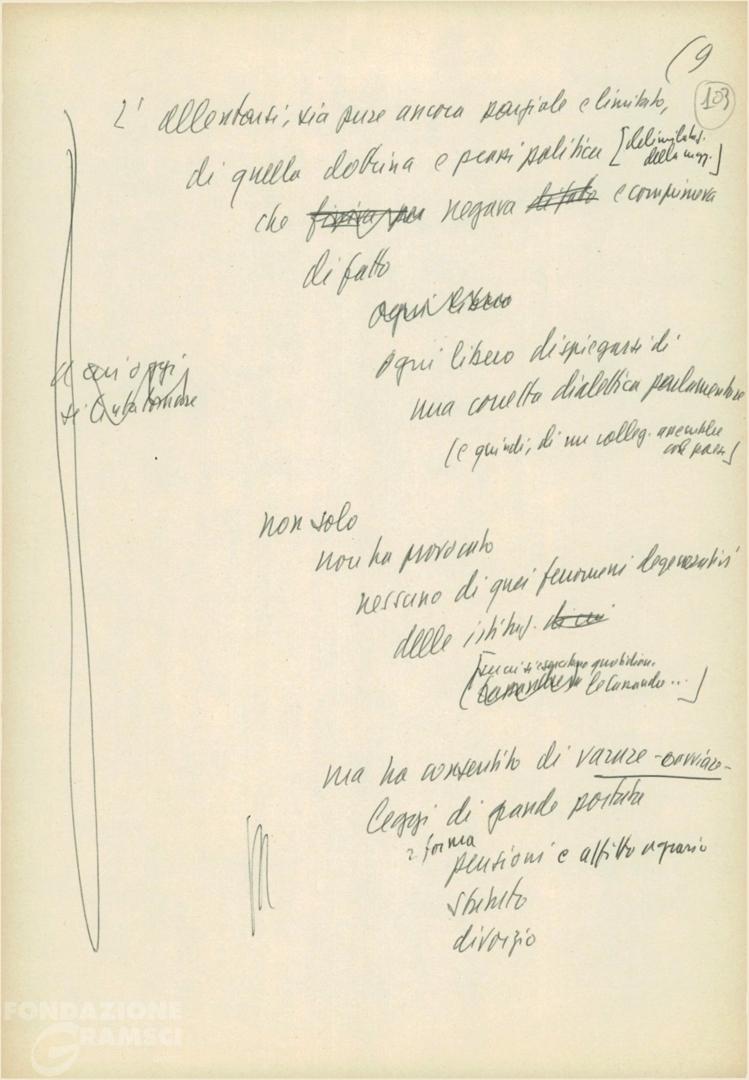 (9
103
L' allentarsi, sia pure ancora parziale e limitato,
di quella dottrina e prassi politica [delimitaz.
della magg.]
che negava di fatto e comprimeva
di fatto
ogni libero
ogni libero dispiegarsi di
una corretta dialettica parlamentare
(e quindi, di un colleg. assemblee
col paese)
a cui oggi
si
non solo
non ha provocato
nessuno di quei fenomeni degenerativi
delle istituz. di cui
[su cui si esercitano quotidian.
le Cassandre...]
ma ha consentito di varare - avviare -
leggi di grande portata
riforma
pensioni e affitto agrario
statuto
divorzio
FONDAZIONE
GRAMSCI